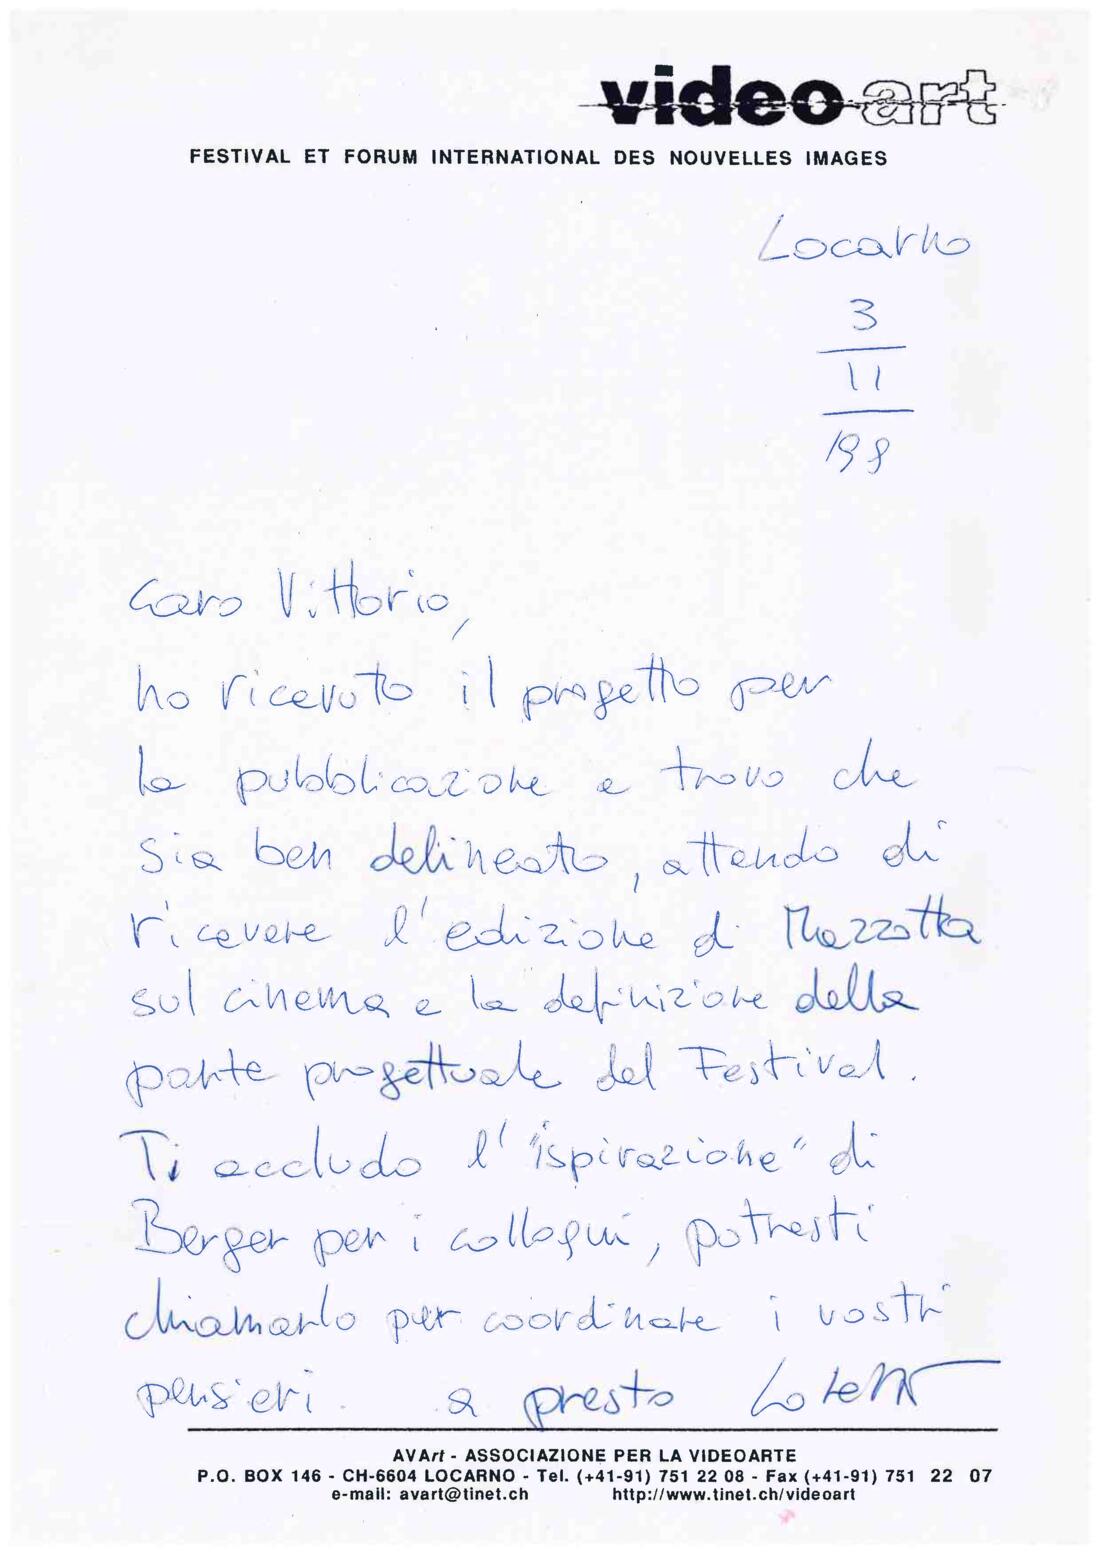 videoart
FESTIVAL ET FORUM INTERNATIONAL DES NOUVELLES IMAGES
Locarno
3
11
198
Caro Vittorio,
ho ricevuto il progetto per
la pubblicazione e trovo che
sia ben delineato, attendo di
ricevere l'edizione di Mazzotta
sul cinema e la definizione della
parte progettuale del Festival.
Ti accludo l'"ispirazione" di
Berger per i colloqui, potresti
chiamarlo per coordinare i vostri
pensieri. a presto
AVArt - ASSOCIAZIONE PER LA VIDEOARTE
P.O. BOX 146 - CH-6604 LOCARNO - Tel. (+41-91) 751 22 08 - Fax (+41-91) 751 22 07
e-mail: avart@tinet.ch http://www.tinet.ch/videoart